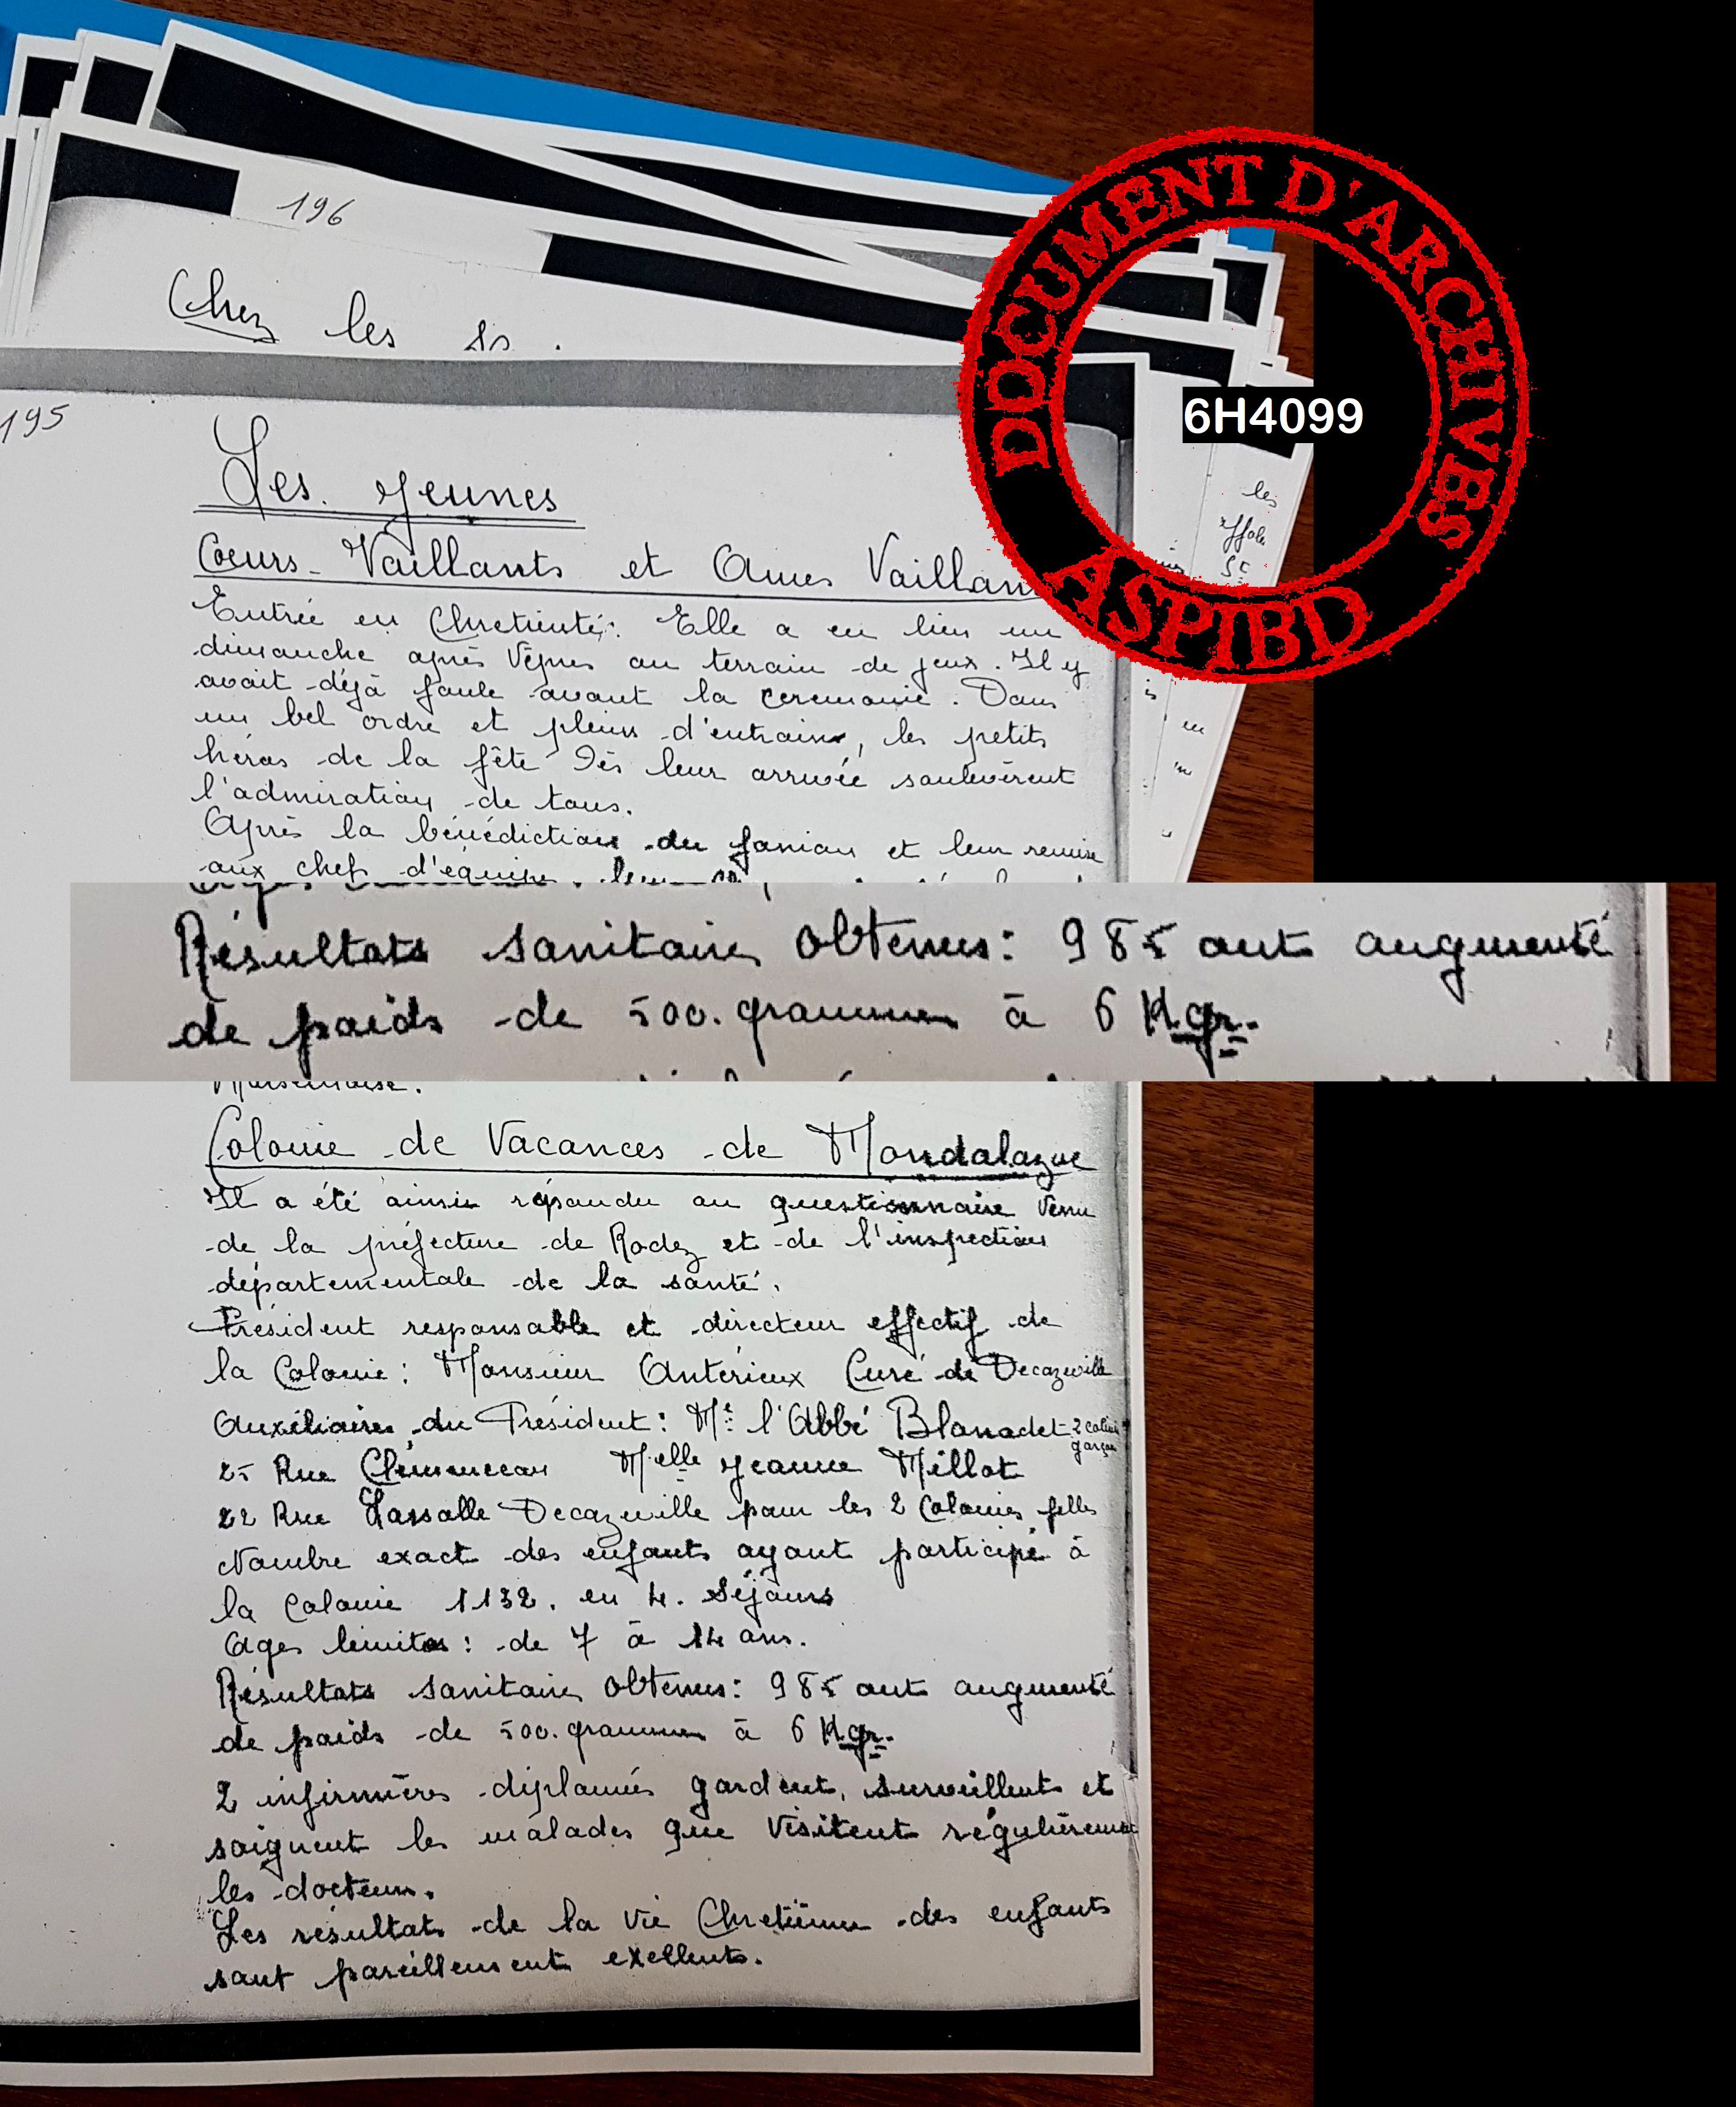 196
Chez les
195
DOCUMENT D'ARCHIVES
ASPIBD
6H4099
les
Les jeunes
Coeurs-Vaillants et Ames Vaillan
Entrée en Chretienté: Elle a eu lieu un
dimanche après Vêpres au terrain de jeux. Il y
avait déjà foule avant la ceremonie. Dans
un bel ordre et pleins d'entrains, les petits
héros de la fête dès leur arrivée soulevèrent
l'admiration de tous.
Après la bénédiction du fanion et leur remise
aux chefs d'équipe,
Résultats sanitaires obtenus: 985 ont augmenté
de poids de 500. grammes à 6 Kgr.
Colonie de Vacances de Mondalazac
Il a été ainsi répondu au questionnaire venu
de la préfecture de Rodez et de l'inspection
départementale de la santé.
Président responsable et directeur effectif de
la Colonie: Monsieur Antérieux Curé de Decazeville
Auxiliaires du Président: Mr l'Abbé Blanadet 2 colonies
garçons
25 Rue Clémenceau Melle Jeanne Millot
22 Rue Lassalle Decazeville pour les 2 Colonies filles
Nombre exact des enfants ayant participé à
la Colonie 1132. en 4. Séjours
Ages limites: de 7 à 14 ans.
Résultats sanitaires obtenus: 985 ont augmenté
de poids de 500. grammes à 6 Kgr.
2 infirmières diplomées gardent, surveillent et
soignent les malades que visitent régulièrement
les docteurs.
Les résultats de la vie Chretienne des enfants
sont pareillement exellents.